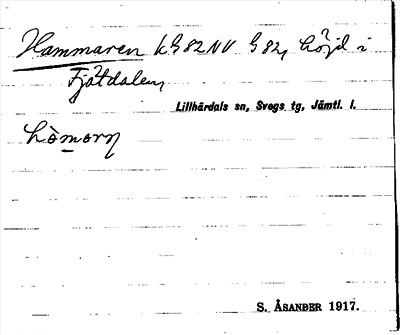 Hammaren kG82NV G82, höjd i
Fjätdalen,
Lillhärdals sn, Svegs tg, Jämtl. l.
hòmorn
S. ÅSANDER 1917.